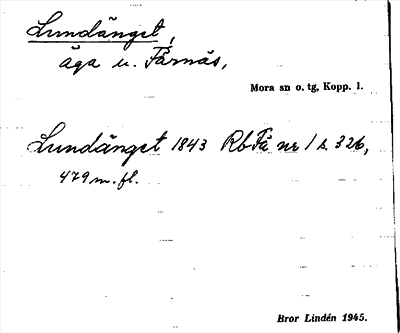 Lundänget,
äga u. Färnäs,
Mora sn o. tg, Kopp. l.
Lundänget 1843 Rb Få nr 1 s. 326,
479 m. fl.
Bror Lindén 1945.